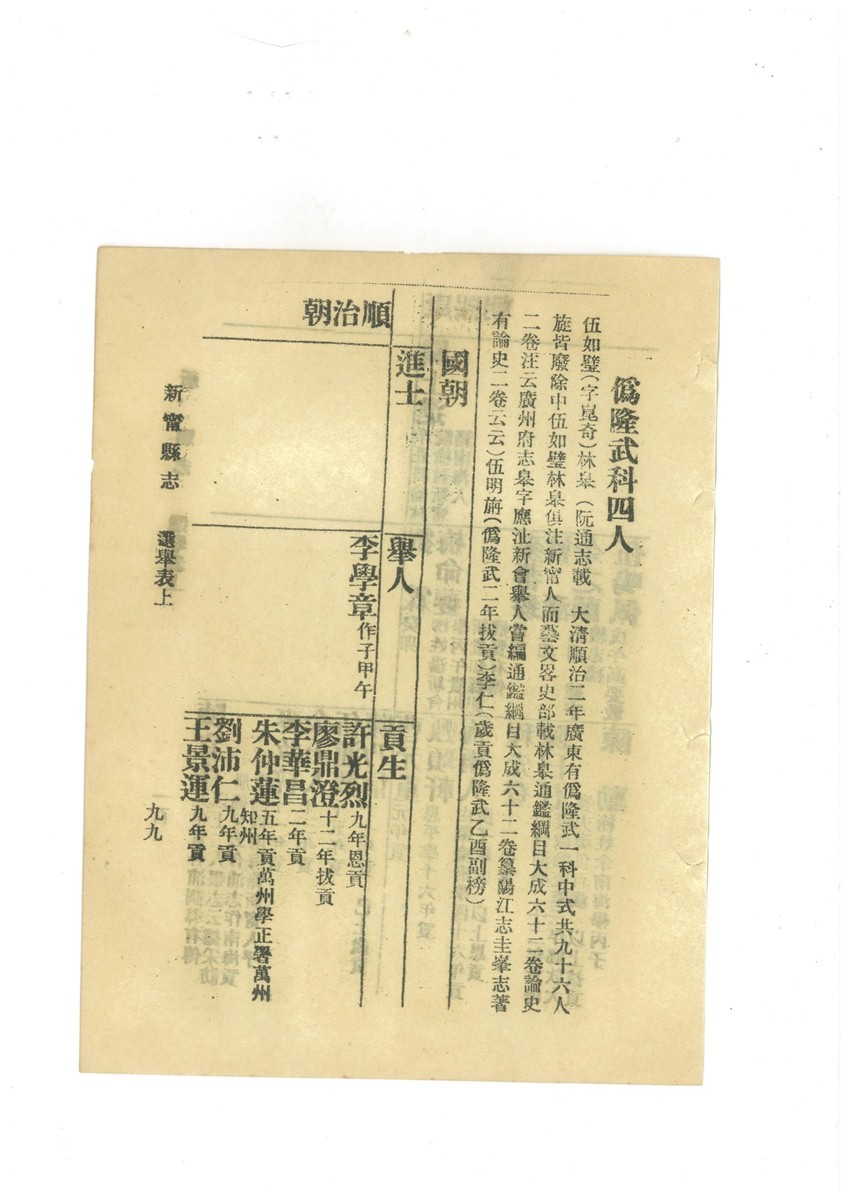 僞隆武科四人
伍如璧(字崑奇)林皐(阮通志載　大清順治二年廣東有僞隆武一科中式共九十六人
旋皆廢除中伍如璧林皐俱注新甯人而藝文畧史部載林皐通鑑綱目大成六十二卷論史
二卷注云廣州府志皐字應沚新會舉人嘗編通鑑綱目大成六十二卷纂陽江志圭峯志著
有論史二卷云云)伍明旃(僞隆武二年拔貢)李仁(歲貢僞隆武乙酉副榜)
國朝
進士
舉人
貢生
順治朝
李學章作子甲午
許光烈九年恩貢
廖鼎澄十二年拔貢
李華昌二年貢
朱仲蓮五年貢萬州學正署萬州知州
劉沛仁九年貢
王景運九年貢
新甯縣志　選舉表上
九九